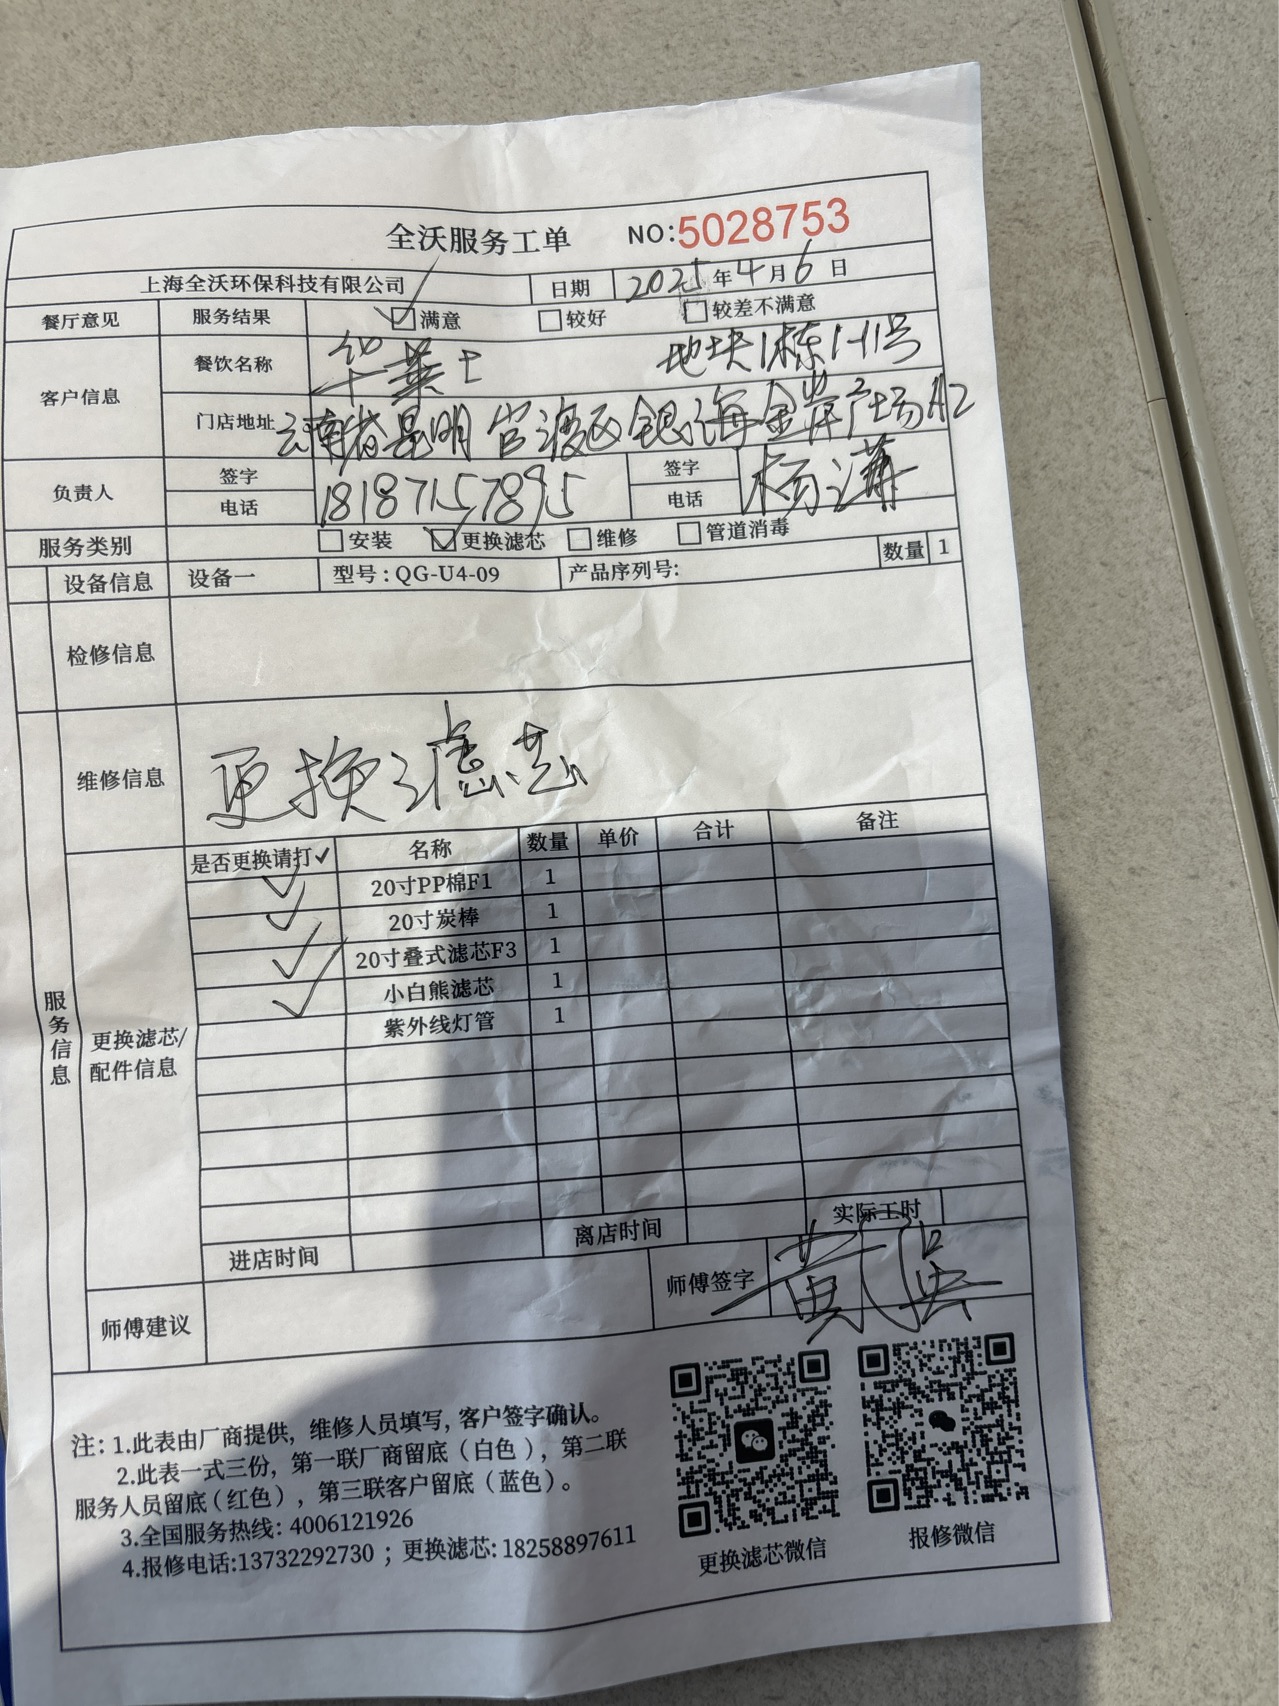 全沃服务工单 NO:5028753
上海全沃环保科技有限公司 日期 2025年4月6日
餐厅意见 服务结果 ☑满意 □较好 □较差不满意
客户信息 餐饮名称 华莱士 地块1栋1-11号
门店地址 云南省昆明官渡区银海金岸广场A2
负责人 签字 签字
电话 18187157895 电话 杨潇
服务类别 □安装 ☑更换滤芯 □维修 □管道消毒
设备信息 设备一 型号:QG-U4-09 产品序列号: 数量 1
检修信息
维修信息 更换滤芯
服务信息
更换滤芯/
配件信息
是否更换请打✓ 名称 数量 单价 合计 备注
✓ 20寸PP棉F1 1
✓ 20寸炭棒 1
✓ 20寸叠式滤芯F3 1
✓ 小白熊滤芯 1
紫外线灯管 1
进店时间 离店时间 实际工时
师傅建议 师傅签字 黄兵
注: 1.此表由厂商提供, 维修人员填写, 客户签字确认。
2.此表一式三份, 第一联厂商留底(白色), 第二联
服务人员留底(红色), 第三联客户留底(蓝色)。
3.全国服务热线: 4006121926
4.报修电话:13732292730 ; 更换滤芯: 18258897611
更换滤芯微信 报修微信